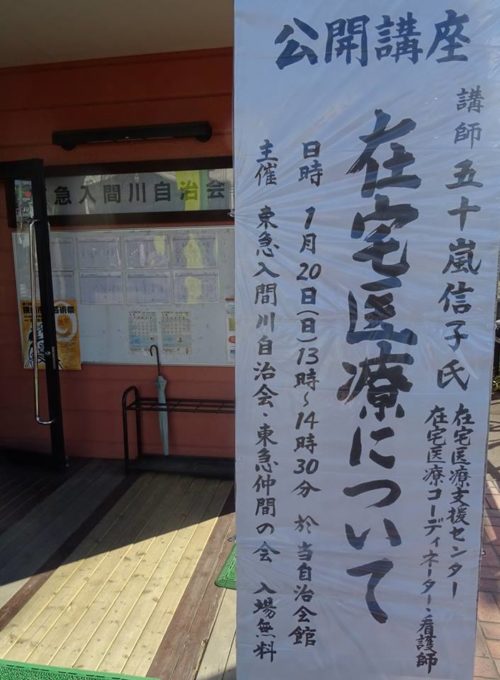 公開講座
講師 五十嵐信子氏
在宅医療支援センター
在宅医療コーディネーター・看護師
在宅医療について
日時 1月20日(日)13時~14時30分 於当自治会館
主催 東急入間川自治会・東急仲間の会 入場無料
急入間川自治会